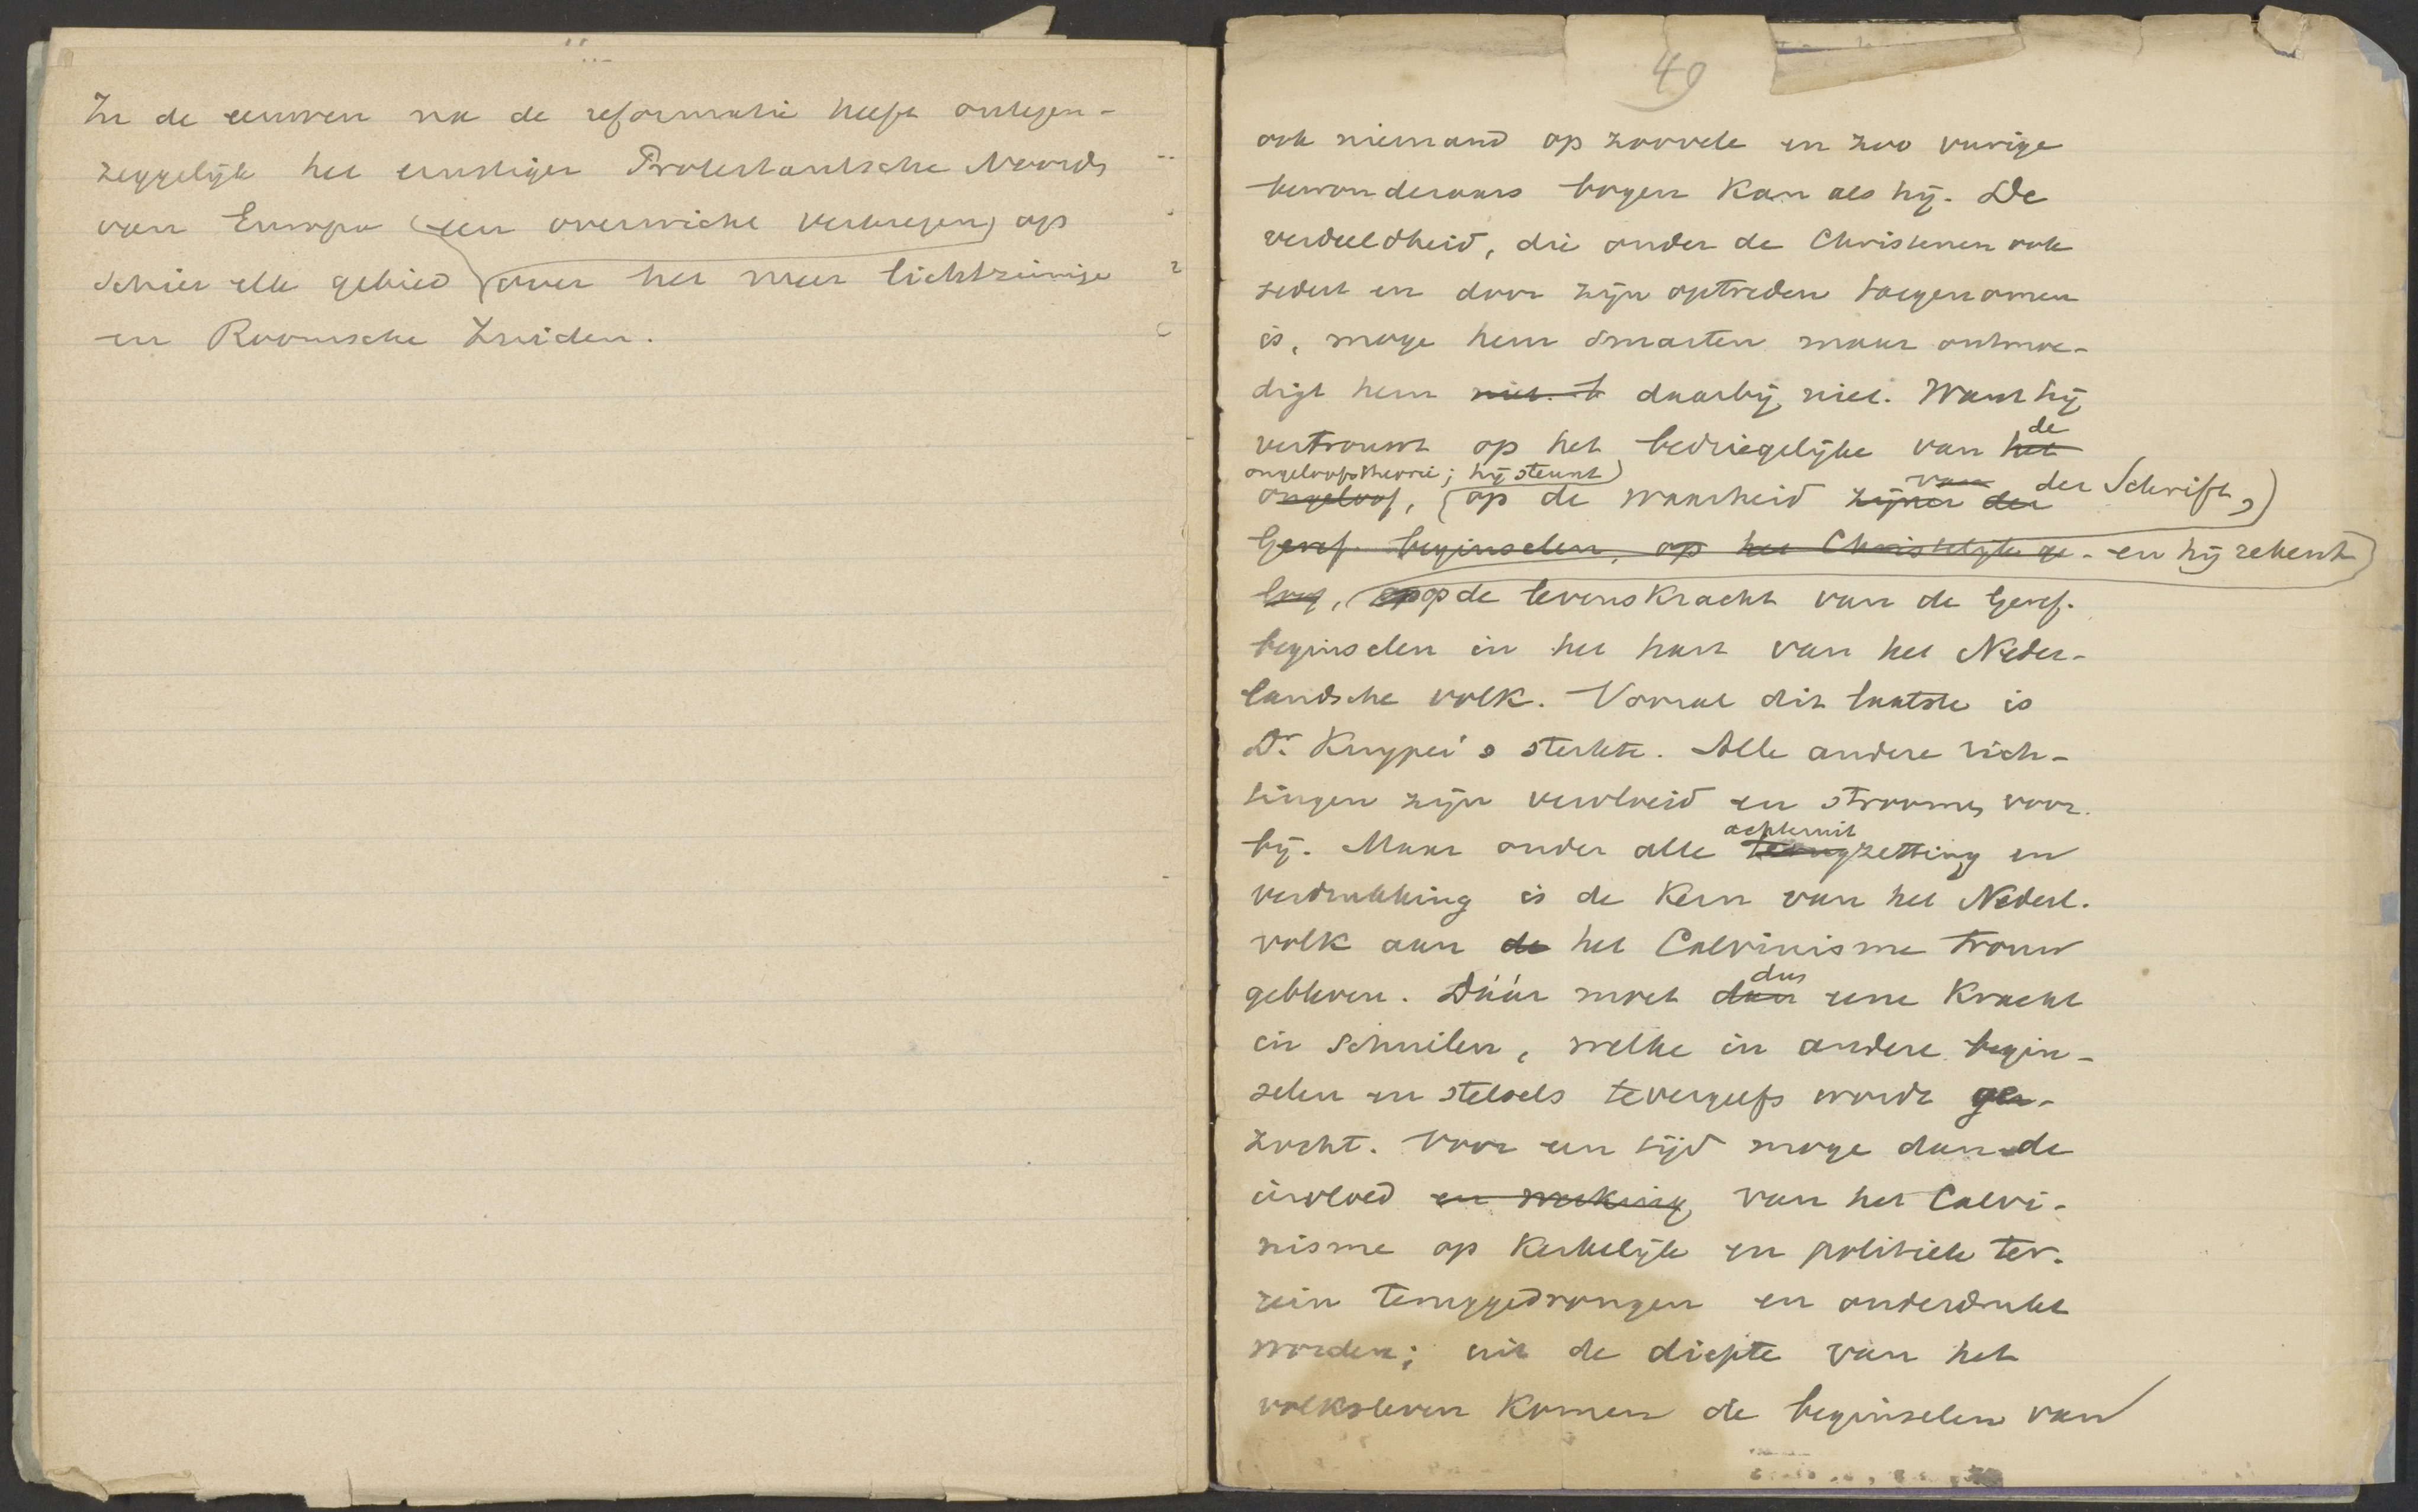 In de eeuwen na de reformatie heeft ontegen-
zeggelijk het ernstiger Protestantsche Noorden
van Europa (een overwicht verkregen) op
schier elk gebied over het meer lichtzinnige
en Roomsche Zuiden.
49
ook niemand op zoovele en zoo vurige
bewonderaars bogen kan als hij. De
verdeeldheid, die onder de Christenen ook
sedert en door zijn optreden toegenomen
is, moge hem smarten maar ontmoe-
digt hem niet. t daarbij niet. Want hij
vertrouwt op het bedriegelijke van het de
ongeloofstheorie; hij steunt
ongeloof, (op de waarheid zijner der van der Schrift,)
Geref. beginselen, op het Christelijk ge- en hij rekent
loof, op op de levenskracht van de Geref.
beginselen in het hart van het Neder-
landsche volk. Vooral dit laatste is
Dr. Kuyper's sterkte. Alle andere rich-
tingen zijn vervloeid en stroomen voor-
bij. Maar onder alle achteruit
terugzetting en
verdrukking is de kern van het Nederl.
volk aan de het Calvinisme trouw
gebleven. Dáár moet dan dus eene kracht
in schuilen, welke in andere begin-
selen en stelsels tevergeefs wordt ge-
zocht. Voor een tijd moge dan de
invloed en werking van het Calvi-
nisme op kerkelijk en politiek ter-
rein teruggedrongen en onderdrukt
worden; uit de diepte van het
volksleven komen de beginselen van